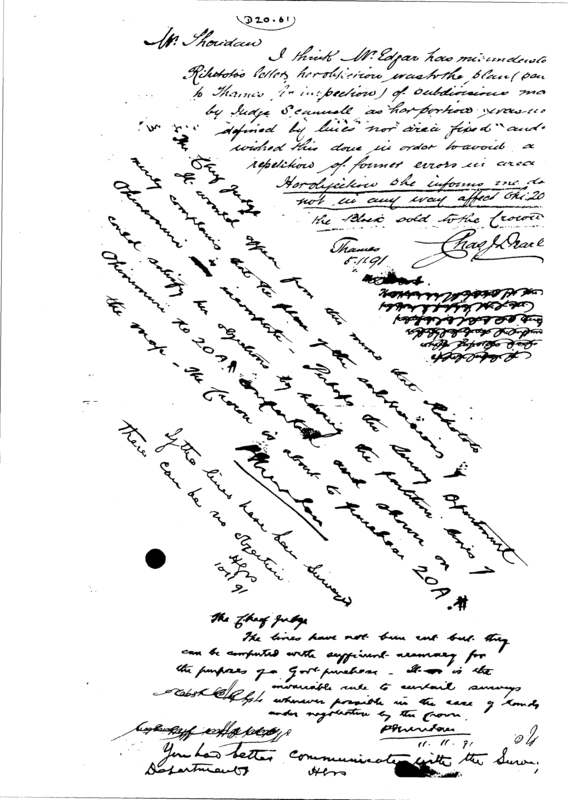 D20.61
Mr Sheridan
I think Mr Edgar has misunderstoo
Rihitoto's letter, her objection was to the plan (sen
to Thames for inspection) of subdivisions ma
by Judge Scannell as her portion was no
defined by "lines" nor "area fixed" and
wished this done in order to avoid a
repetition of former errors in area
Her objection she informs me do
not in any way affect Ohi 20
the Block sold to the Crown
Thames
5.11.91
The Chief Judge
It would appear from this memo that Rihitoto
merely complains that the plan of the subdivisions of
Ohinemuri is incomplete - Perhaps the Survey Department
could satisfy her objections by having the partition lines of
Ohinemuri No 20A computed and shown on
the map - The Crown is about to purchase 20A.
PSheridan
If the lines have been surveyed
there can be no objection.
HGS
10/11 91
The Chief Judge
The lines have not been cut but they
can be computed with sufficient accuracy for
the purposes of a Govt purchase - It is the
invariable rule to curtail surveys
whenever possible in the case of lands
under negotiation by the Crown.
PSheridan
11.11.91
You had better communicate with the Survey
Department
HGS